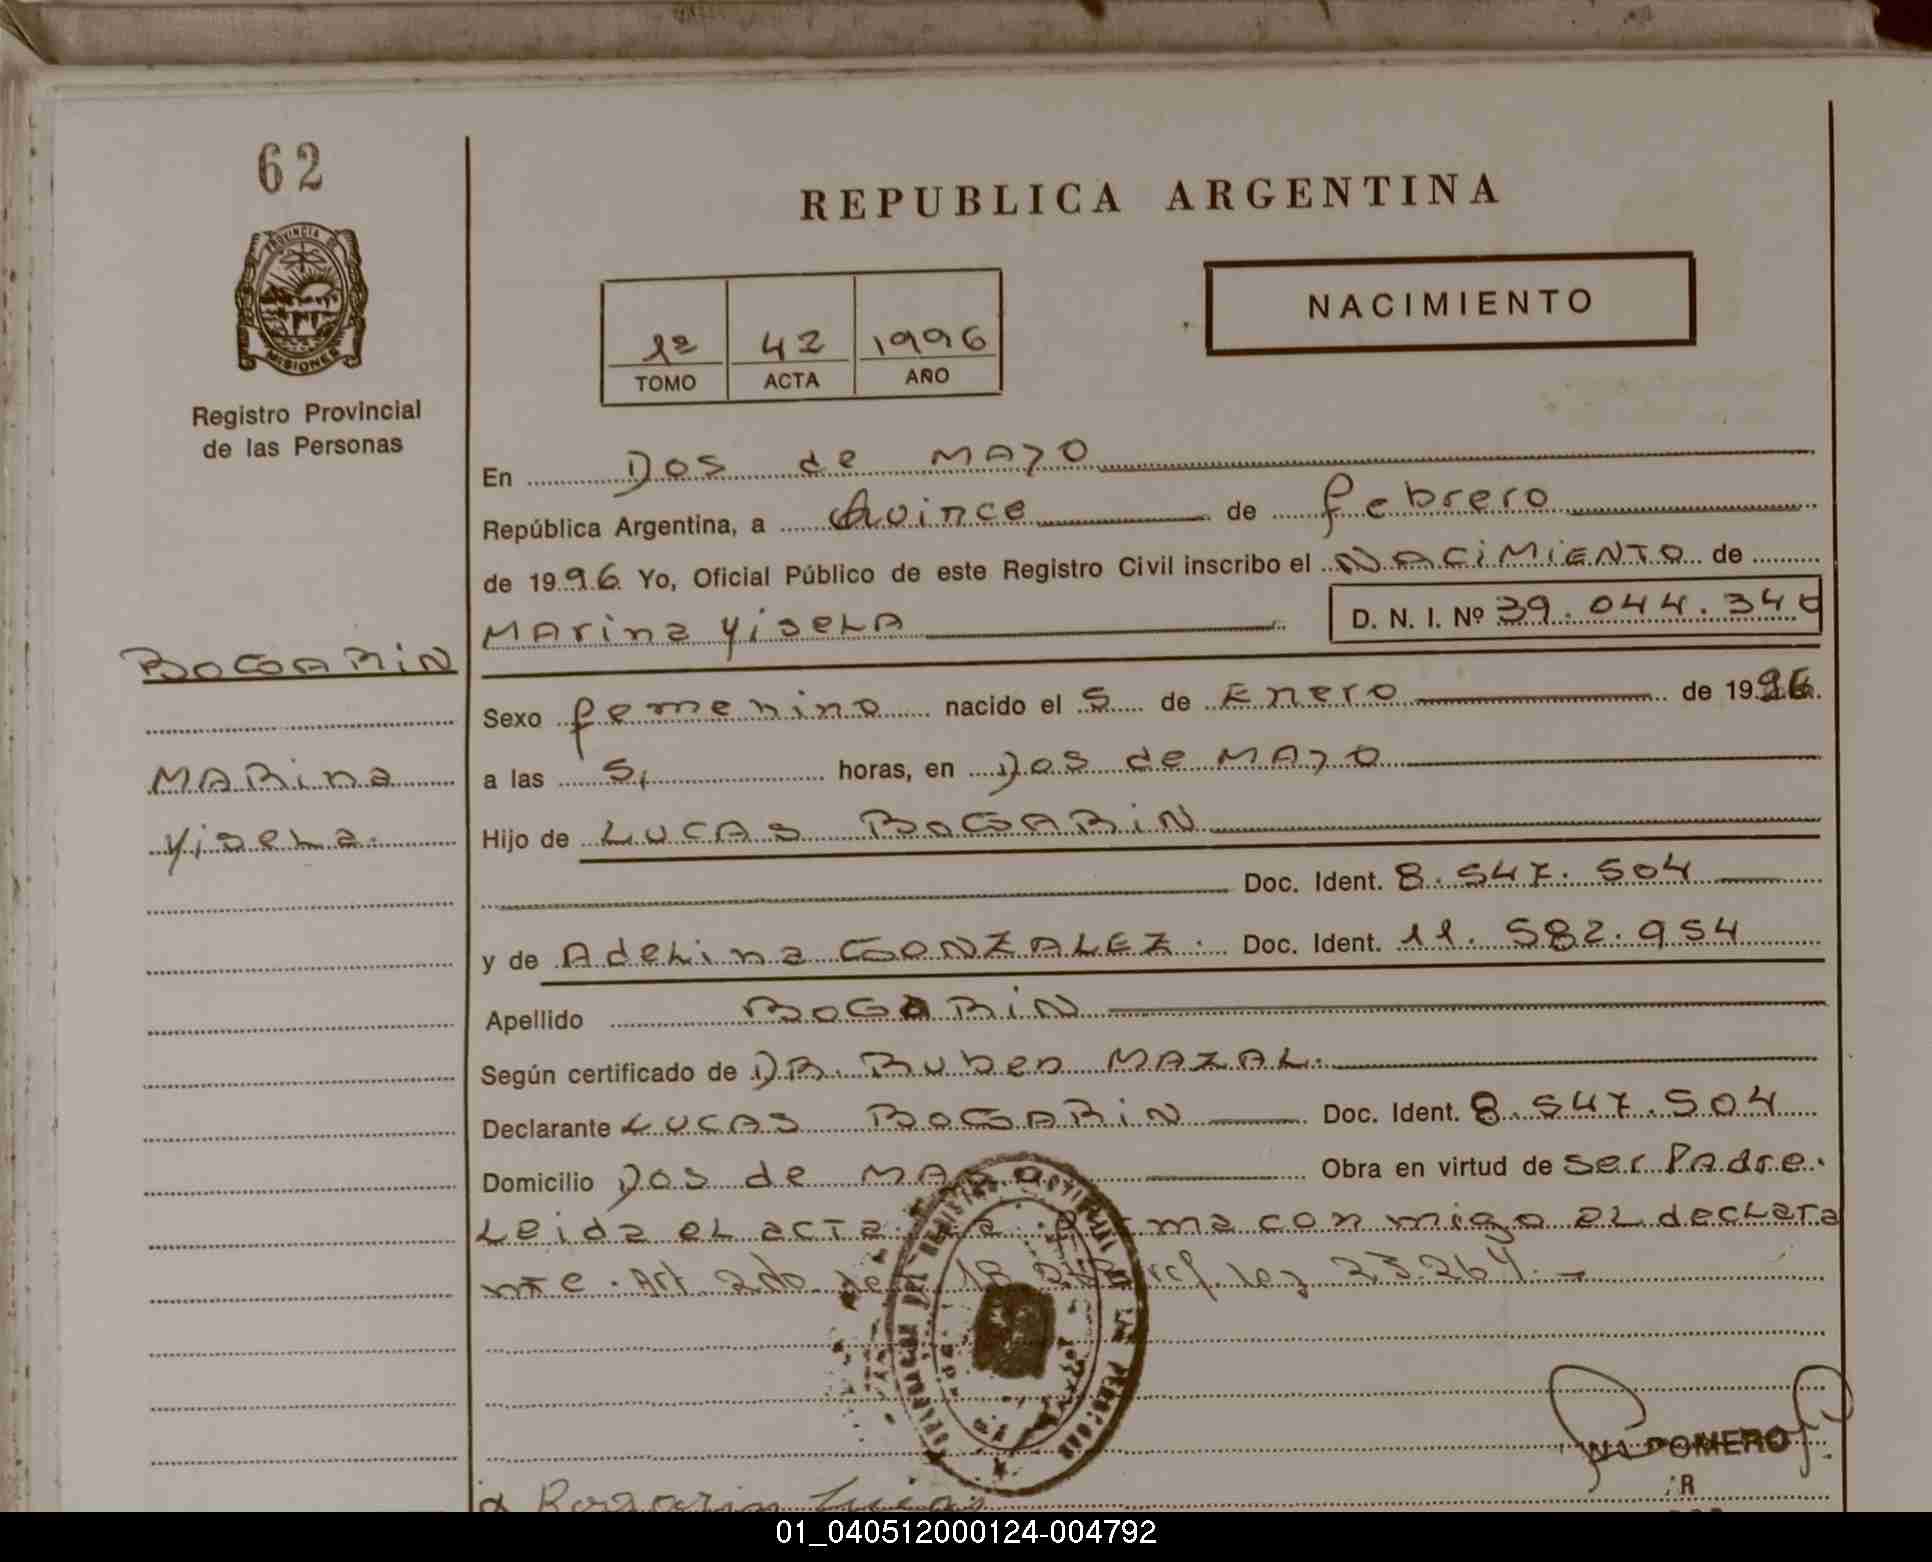 62
PROVINCIA DE
MISIONES
Registro Provincial
de las Personas
REPUBLICA ARGENTINA
NACIMIENTO
1º 42 1996
TOMO ACTA AÑO
En Dos de MAyO
República Argentina, a Quince de febrero
de 1996 Yo, Oficial Público de este Registro Civil inscribo el NACiMiENTO de
Marina YiseLA D. N. I. Nº 39.044.346
BOGARiN
MARina
YiseLa.
Sexo femenino nacido el 5 de Enero de 1996.
a las 5, horas, en Dos de MAyO
Hijo de LUCAS BOGARiN
Doc. Ident. 8.547.504
y de AdeLina GONZALEZ. Doc. Ident. 11.582.954
Apellido BOGARiN
Según certificado de DR. Ruben MAZAL.
Declarante LUCAS BOGARiN Doc. Ident. 8.547.504
Domicilio Dos de MAyO Obra en virtud de ser PAdre.
Leida eL acta La firma conmigo eL decLara
nte. Art 2do de 18.248 ref ley 23.264.
POMERO
Bogarin Lucas
01_040512000124-004792